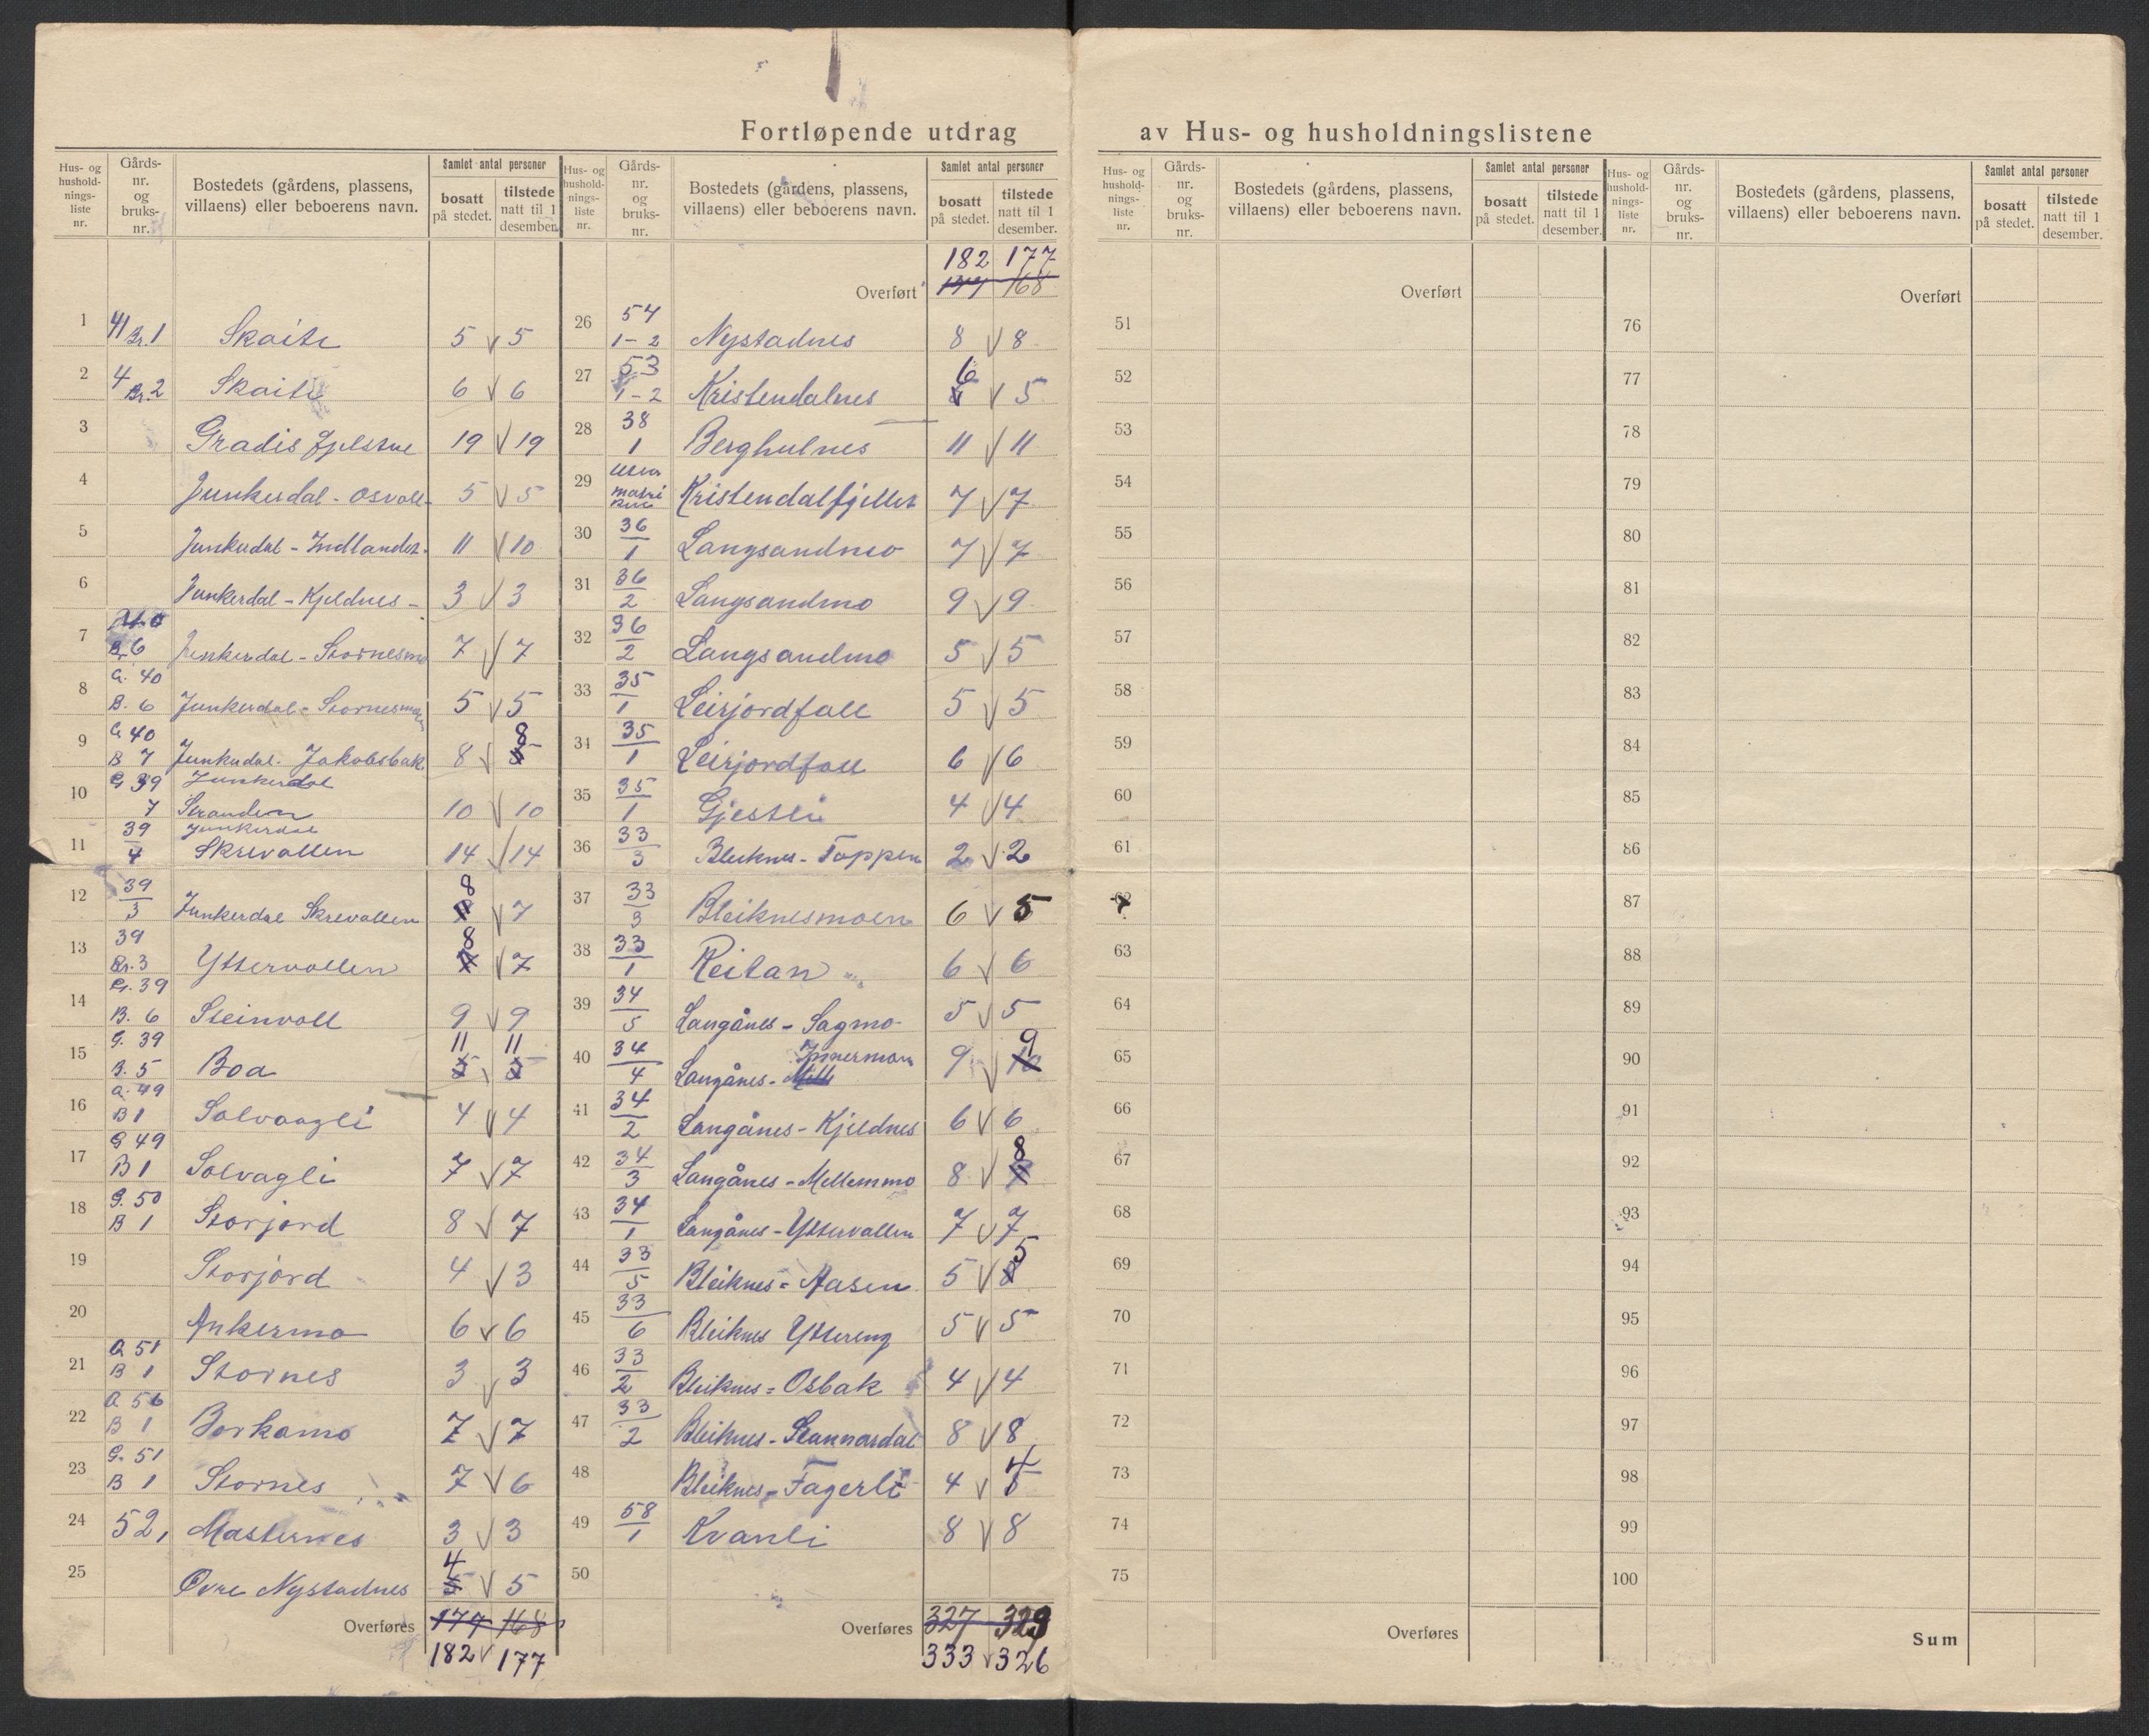 Fortløpende utdrag av Hus- og husholdningslistene
Hus- og hushold-nings-liste nr. Gårds-nr. og bruks-nr. Bostedets (gårdens, plassens, villaens) eller beboerens navn. Samlet antal personer bosatt på stedet. tilstede natt til 1 desember.
Hus- og hushold-nings-liste nr. Gårds-nr. og bruks-nr. Bostedets (gårdens, plassens, villaens) eller beboerens navn. Samlet antal personer bosatt på stedet. tilstede natt til 1 desember.
Hus- og hushold-nings-liste nr. Gårds-nr. og bruks-nr. Bostedets (gårdens, plassens, villaens) eller beboerens navn. Samlet antal personer bosatt på stedet. tilstede natt til 1 desember.
Hus- og hushold-nings-liste nr. Gårds-nr. og bruks-nr. Bostedets (gårdens, plassens, villaens) eller beboerens navn. Samlet antal personer bosatt på stedet. tilstede natt til 1 desember.
1 41 Br. 1 Skaiti 5 √ 5
2 4 Br. 2 Skaiti 6 √ 6
3 Gradis fjelstue 19 √ 19
4 Junkerdal - Osvoll 5 √ 5
5 Junkerdal - Indlandet 11 √ 10
6 Junkerdal - Kjeldnes - 3 √ 3
7 40 Br 6 Junkerdal - Stornesmo 7 √ 7
8 G. 40 B. 6 Junkerdal - Stornesmoen 5 √ 5
9 G 40 B 7 Junkerdal. Jakobsbak. 8 √ 8
10 G 39 7 Junkerdal Stranden 10 √ 10
11 39 4 Junkerdal Skrevollen 14 √ 14
12 39 3 Junkerdal Skrevollen 8 √ 7
13 39 Br. 3 Yttervollen 8 √ 7
14 G. 39 B. 6 Steinvoll 9 √ 9
15 G. 39 B. 5 Boa 11 11
16 G. 49 B 1 Solvaagli 4 √ 4
17 G 49 B 1 Solvagli 7 √ 7
18 G. 50 B 1 Storjord 8 √ 7
19 Storjord 4 √ 3
20 Ankermo 6 √ 6
21 G 51 B 1 Stornes 3 √ 3
22 G 56 B 1 Borkamo 7 √ 7
23 G. 51 B 1 Stornes 7 √ 6
24 52, Masternes 3 √ 3
25 Øvre Nystadnes 4 √ 5
Overføres 177 168
182 √ 177
182 177
Overført 177 168
26 54 1-2 Nystadnes 8 √ 8
27 53 1-2 Kristendalnes 6 √ 5
28 38 1 Berghulnes 11 √ 11
29 uten matri Kristendalfjellet 7 √ 7
30 36 1 Langsandmo 7 √ 7
31 36 2 Langsandmo 9 √ 9
32 36 2 Langsandmo 5 √ 5
33 35 1 Leirjordfall 5 √ 5
34 35 1 Leirjordfall 6 √ 6
35 35 1 Gjestli 4 √ 4
36 33 3 Bleiknes - Toppen 2 √ 2
37 33 3 Bleiknesmoen 6 √ 5
38 33 1 Reitan 6 √ 6
39 34 5 Langånes - Sagmo 5 √ 5
40 34 4 Langånes - Innermoen 9 √ 9 10
41 34 2 Langånes - Kjeldnes 6 √ 6
42 34 3 Langånes - Mellemmo 8 √ 8
43 34 1 Langånes - Yttervollen 7 √ 7
44 33 5 Bleiknes = Aasen 5 √ 5
45 33 6 Bleiknes Yttereng 5 √ 5
46 33 2 Bleiknes = Osbak 4 √ 4
47 33 2 Bleiknes - Stannardal 8 √ 8
48 Bleiknes - Fagerli 4 √ 4
49 58 1 Kvanli 8 √ 8
50
Overføres 327 329
333 √ 326
Overført
51
52
53
54
55
56
57
58
59
60
61
62
63
64
65
66
67
68
69
70
71
72
73
74
75
Overføres
Overført
76
77
78
79
80
81
82
83
84
85
86
87
88
89
90
91
92
93
94
95
96
97
98
99
100
Sum